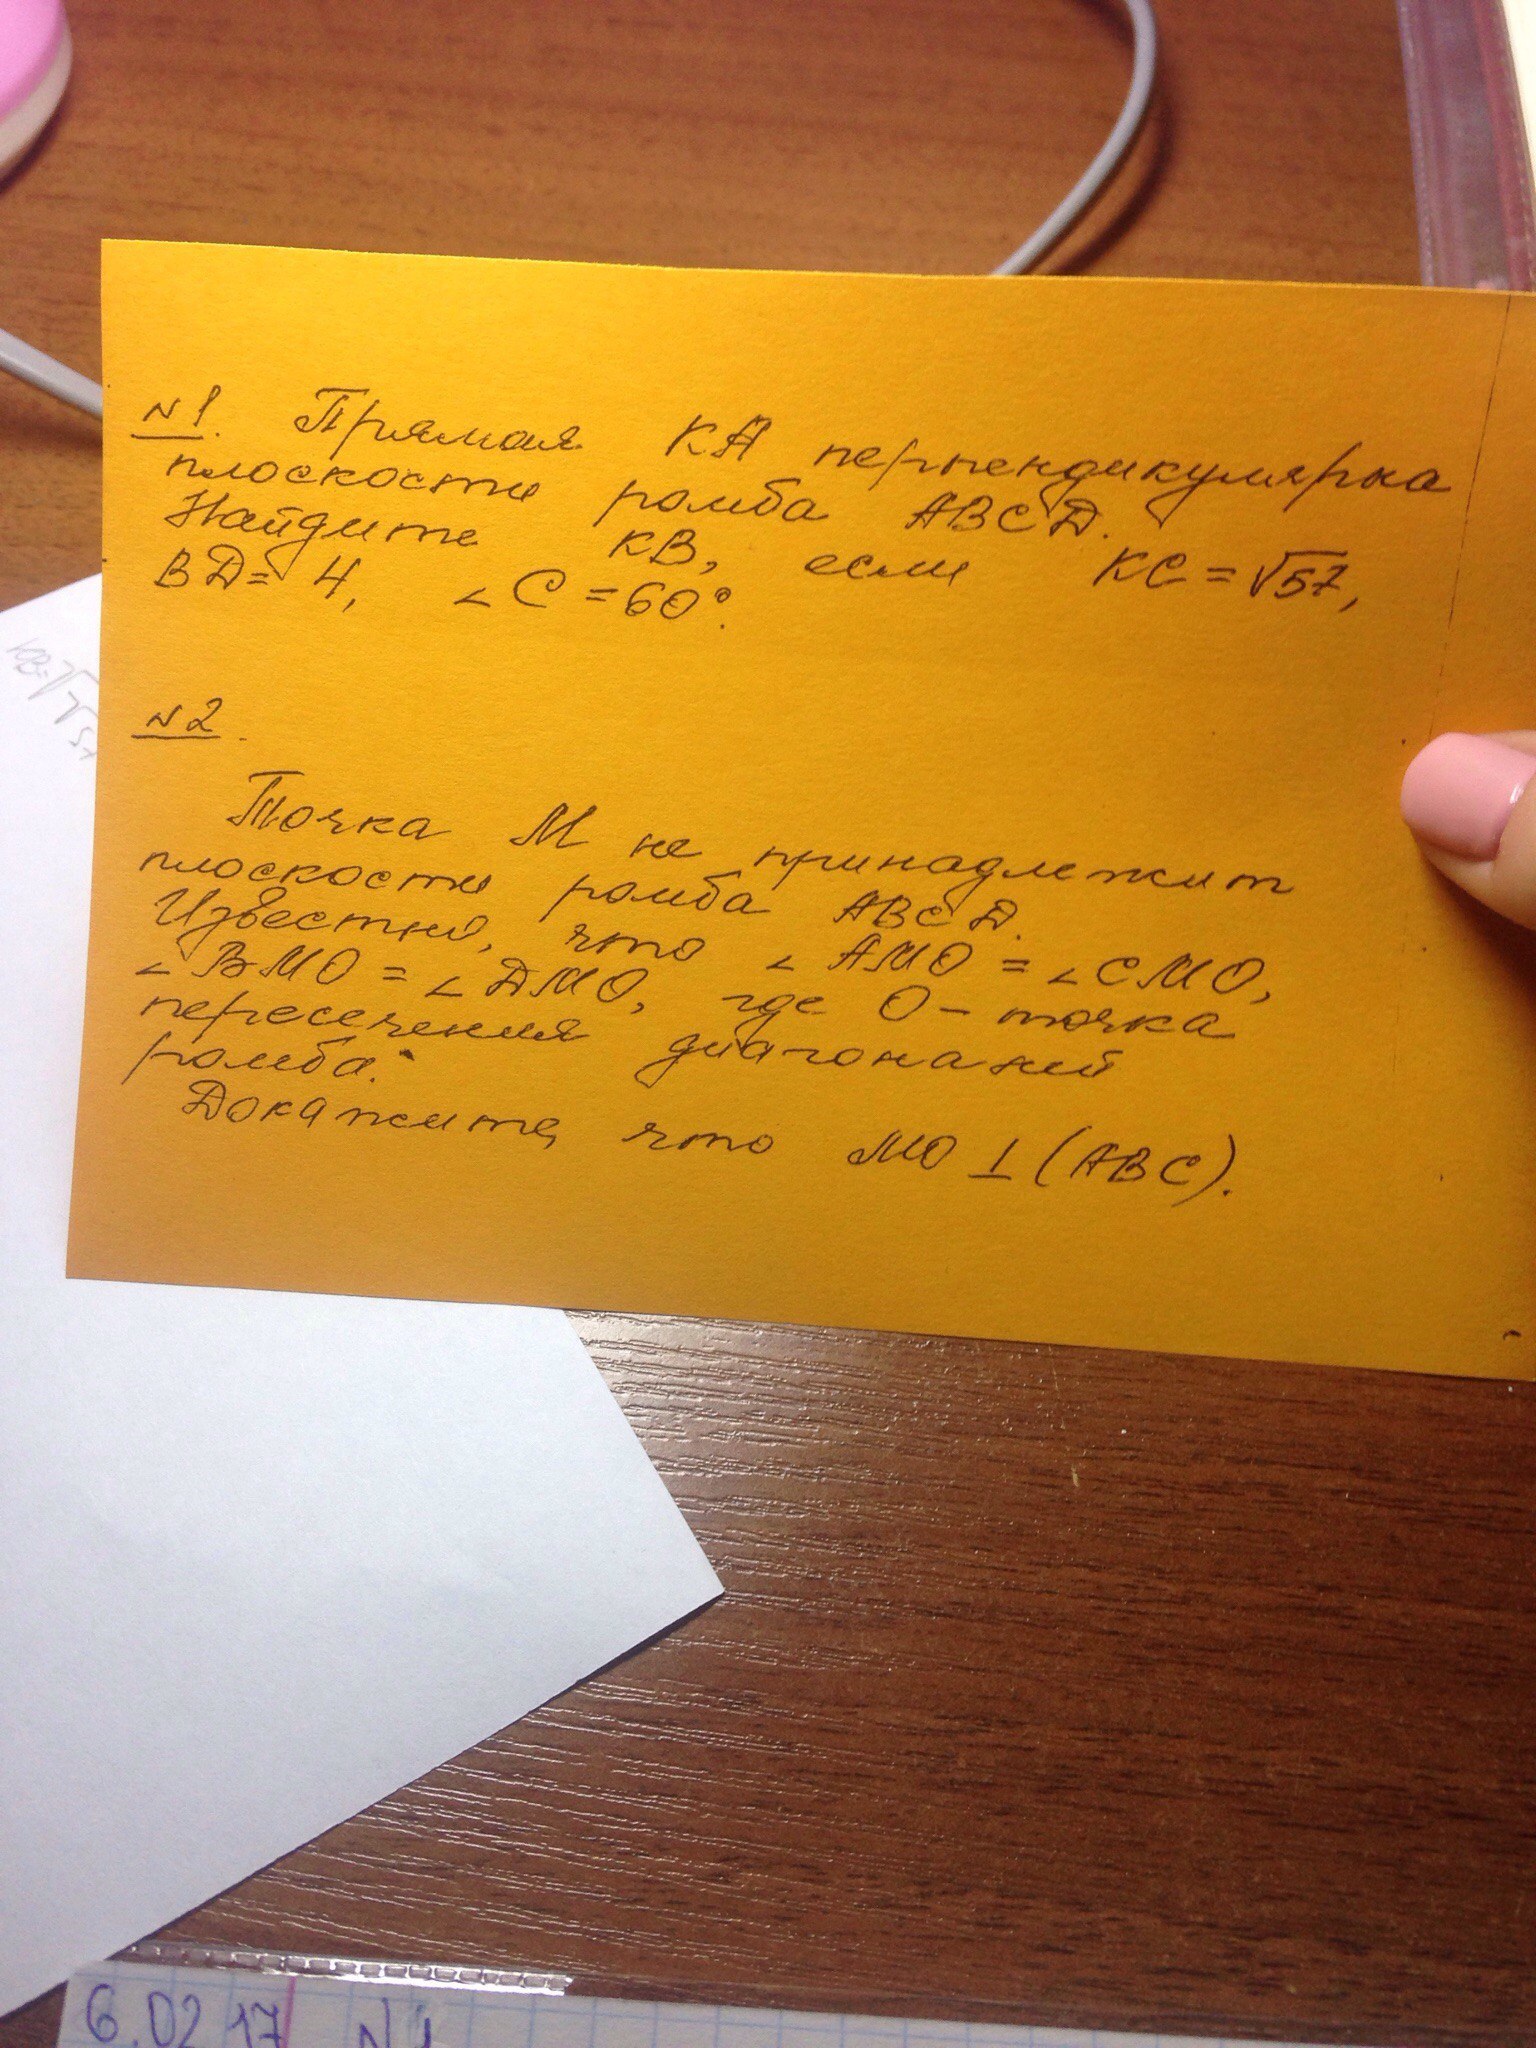 №1. Прямая КА перпендикулярна
плоскости ромба АВСД.
Найдите КВ, если КС = √57,
ВД = 4, ∠С = 60°.
№2.
Точка М не принадлежит
плоскости ромба АВСД.
Известно, что ∠АМО = ∠СМО,
∠ВМО = ∠ДМО, где О – точка
пересечения диагоналей
ромба.
Докажите, что МО ⊥ (АВС).
6.02.17 №1